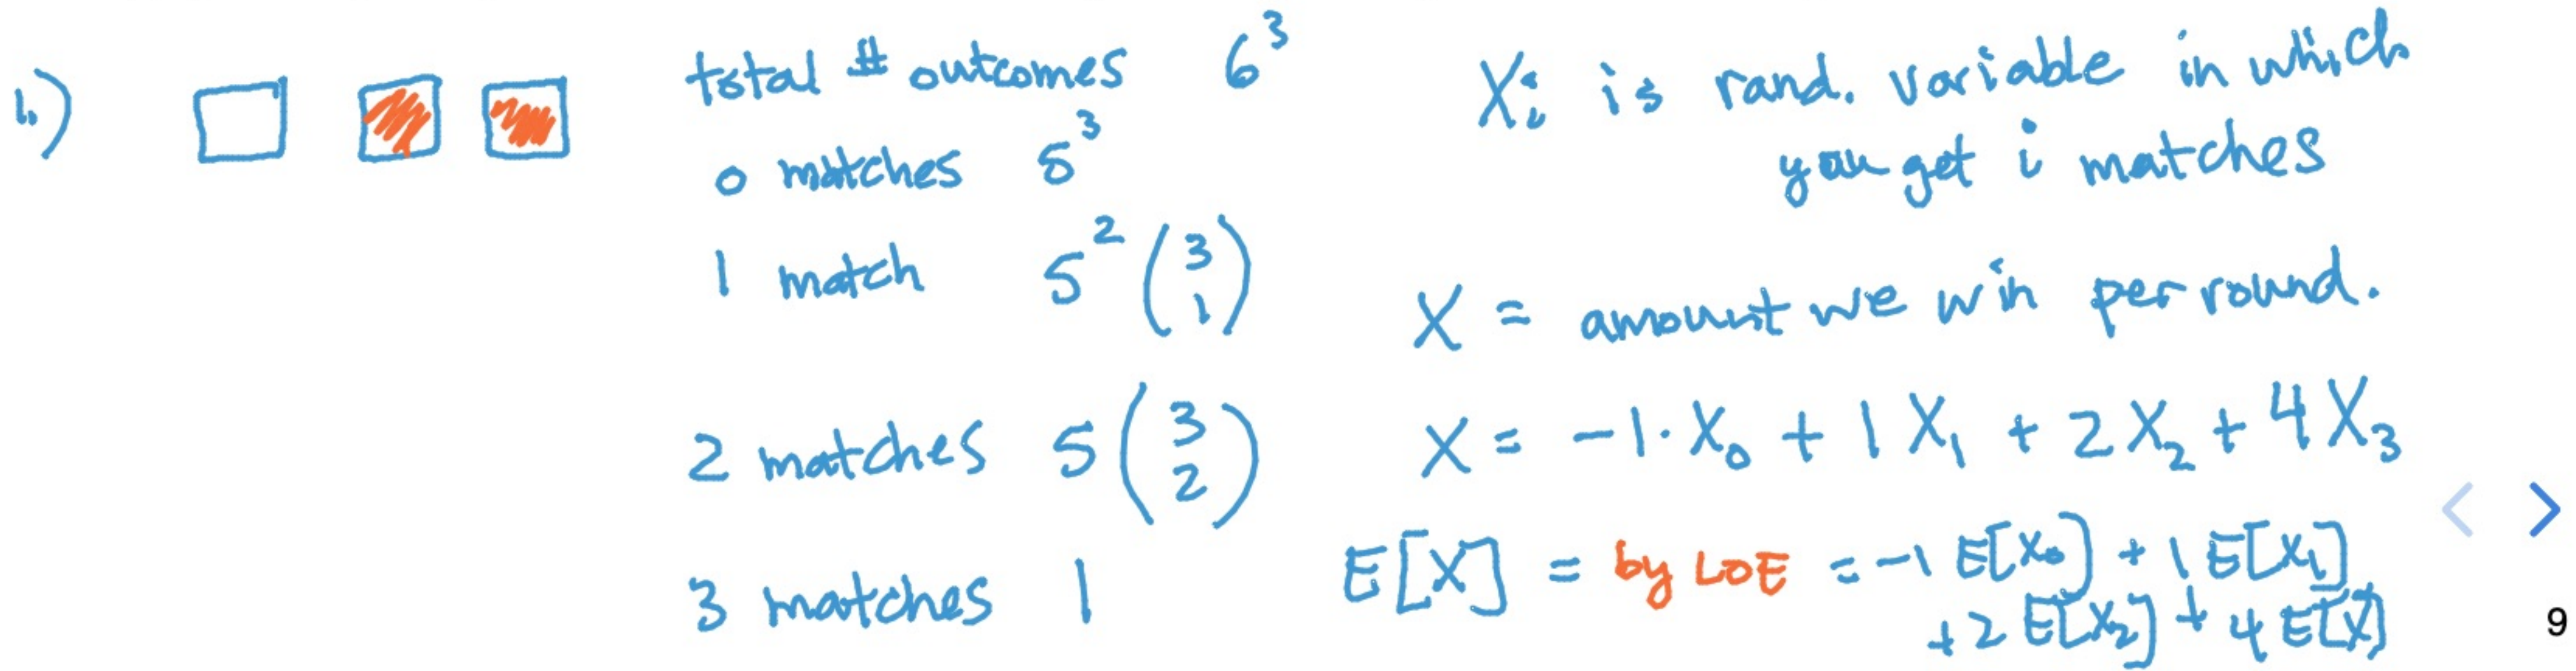 1.)
total # outcomes 6³
0 matches 5³
1 match 5² (3 1)
2 matches 5 (3 2)
3 matches 1
Xᵢ is rand. variable in which
you get i matches
X = amount we win per round.
X = -1·X₀ + 1X₁ + 2X₂ + 4X₃
E[X] = by LOE = -1 E[X₀] + 1 E[X₁]
+2 E[X₂] + 4 E[X]
9